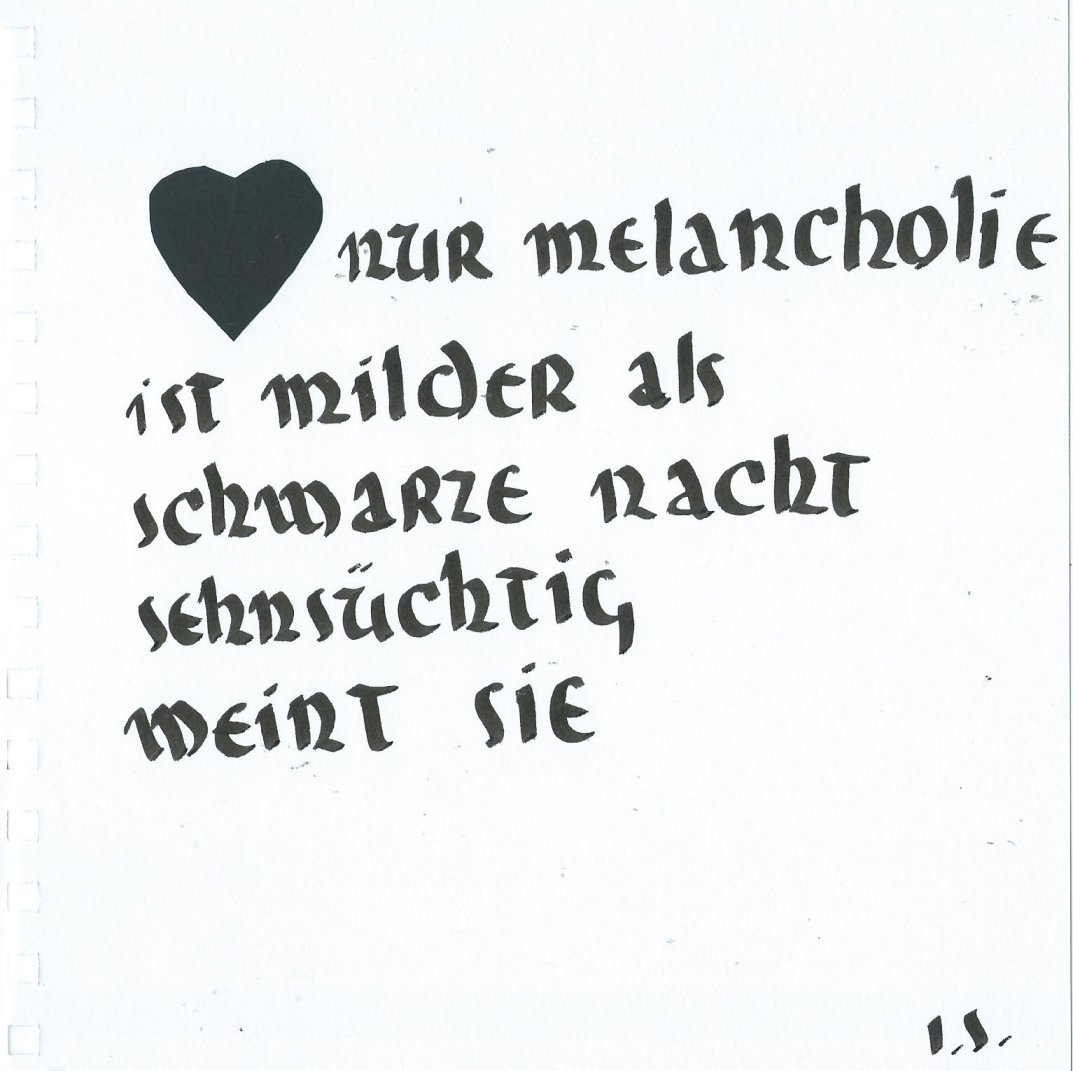 nur melancholie
ist milder als
schwarze nacht
sehnsüchtig
weint sie
I.S.